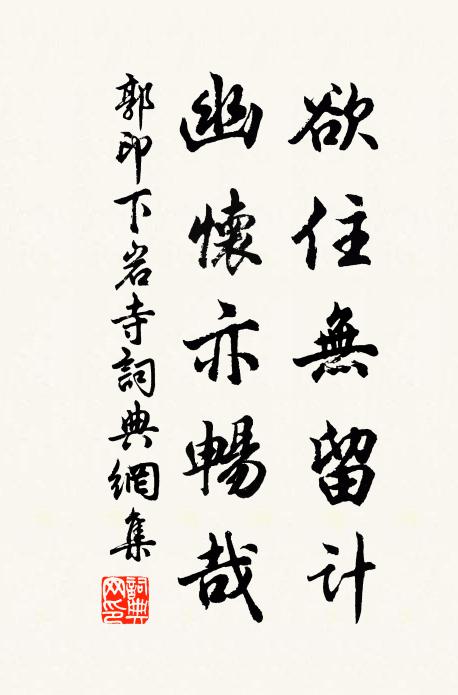 欲住無留計
幽懷亦暢哉
郭印下岩寺詞典網集
詞典網印